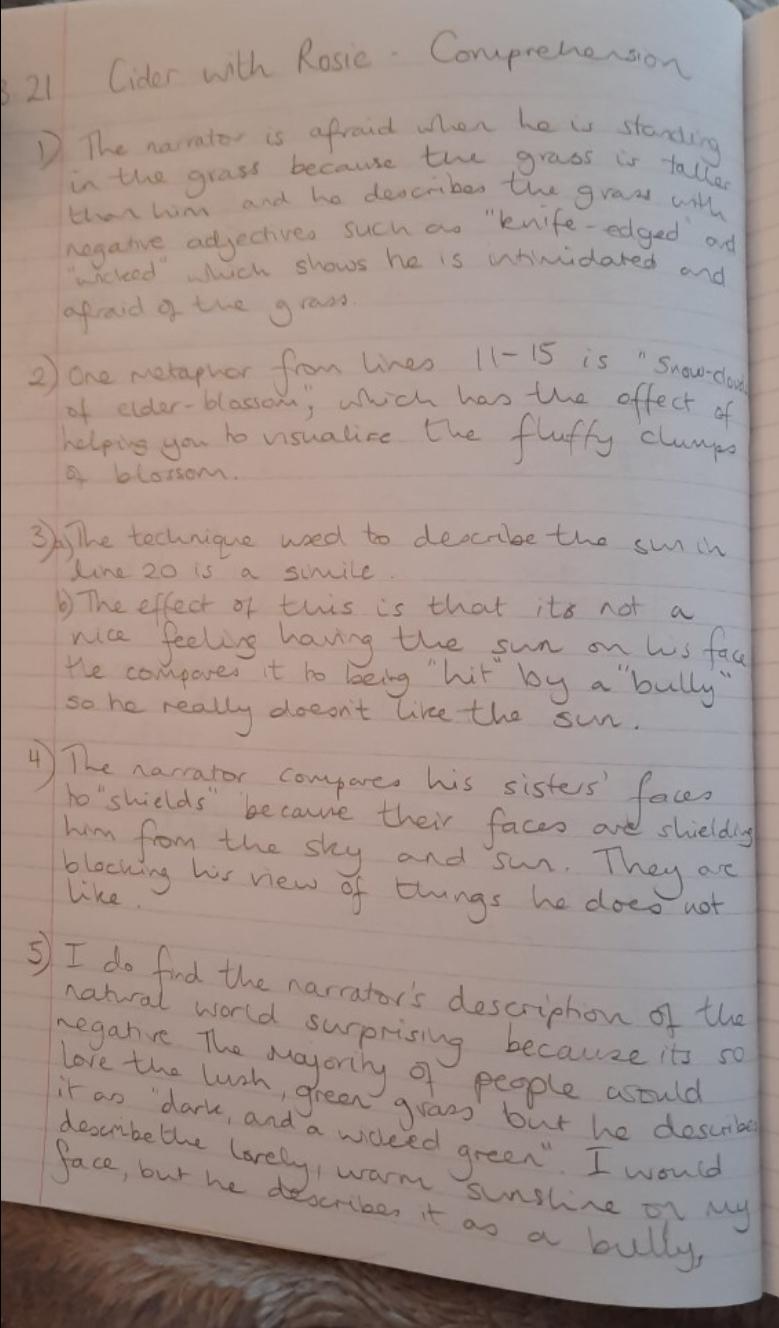 3 21 Cider with Rosie - Comprehension
1) The narrator is afraid when he is standing
in the grass because the grass is taller
than him and he describes the grass with
negative adjectives such as "knife-edged" ad
"wicked" which shows he is intimidated and
afraid of the grass.
2) One metaphor from lines 11-15 is "Snow-clouds
of elder-blossom", which has the effect of
helping you to visualise the fluffy clumps
of blossom.
3) a) The technique used to describe the sun in
line 20 is a simile.
b) The effect of this is that its not a
nice feeling having the sun on his face
He compares it to being "hit" by a "bully"
so he really doesn't like the sun.
4) The narrator compares his sisters' faces
to "shields" because their faces are shielding
him from the sky and sun. They are
blocking his view of things he does not
like.
5) I do find the narrator's description of the
natural world surprising because its so
negative The majority of people would
love the lush, green grass but he describes
it as "dark, and a wicked green". I would
describe the lovely, warm sunshine on my
face, but he describes it as a bully,